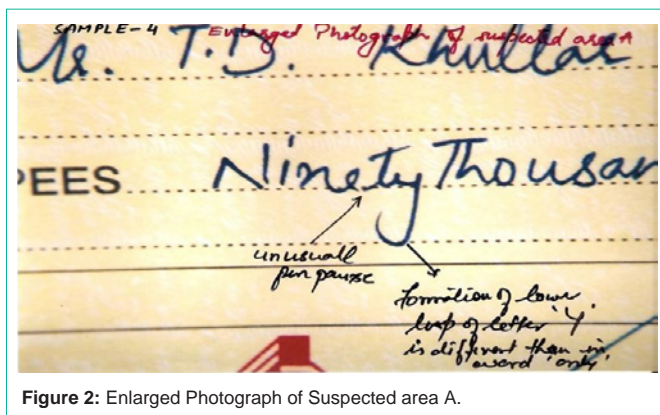 SAMPLE-4 Enlarged Photograph of suspected area A
Mr. T.D. Khullar
PEES Ninety Thousan
unusuall
pen pause
formation of lower
loop of letter 'y'
is different than in
word 'only'
Figure 2: Enlarged Photograph of Suspected area A.